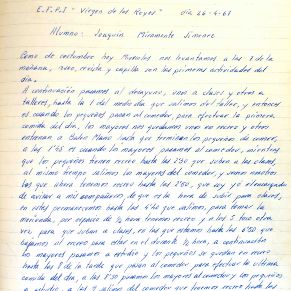 E.F.P.I "Virgen de los Reyes" día 26-4-67
Alumno: Joaquín Miramonte Jimenez
Como de costumbre hoy Miercoles nos levantamos a las 7 de la
mañana, aseo, revista y capilla son las primeras actividades del
día.
A continuación pasamos al desayuno, unos a clases y otros a
talleres, hasta la 1 del medio día que salimos del taller, y entonces
es cuando los pequeños pasan al comedor, para efectuar la primera
comida del día, los mayores nos quedamos unos en recreo y otros
hasta que terminan los pequeños de comer,
a las 1'45 es cuando los mayores pasamos al comedor, mientras
que los pequeños tienen recreo hasta las 2'30 que suben a las clases,
al mismo tiempo salimos los mayores del comedor, y somos nosotros
los que ahora tenemos recreo hasta las 2'50, que soy yo el encargado
de avisar a mis compañeros, de que es la hora de subir para clases,
en estas permanecemos hasta las 4'45 que salimos, para tomar la
merienda, por espacio de ½ hora tenemos recreo y a las 5 toco otra
vez para que suban a clases, en las que estamos hasta las 6'30 que
bajamos al recreo para estar en el durante ½ hora, a continuación
los mayores pasamos a estudio y los pequeños se quedan en recreo
hasta las 8 de la tarde que pasan al comedor para efectuar la última
comida del día, a las 8'30 pasamos los mayores al comedor y los pequeños
a estudio, a las 9 salimos del comedor que tenemos recreo hasta las